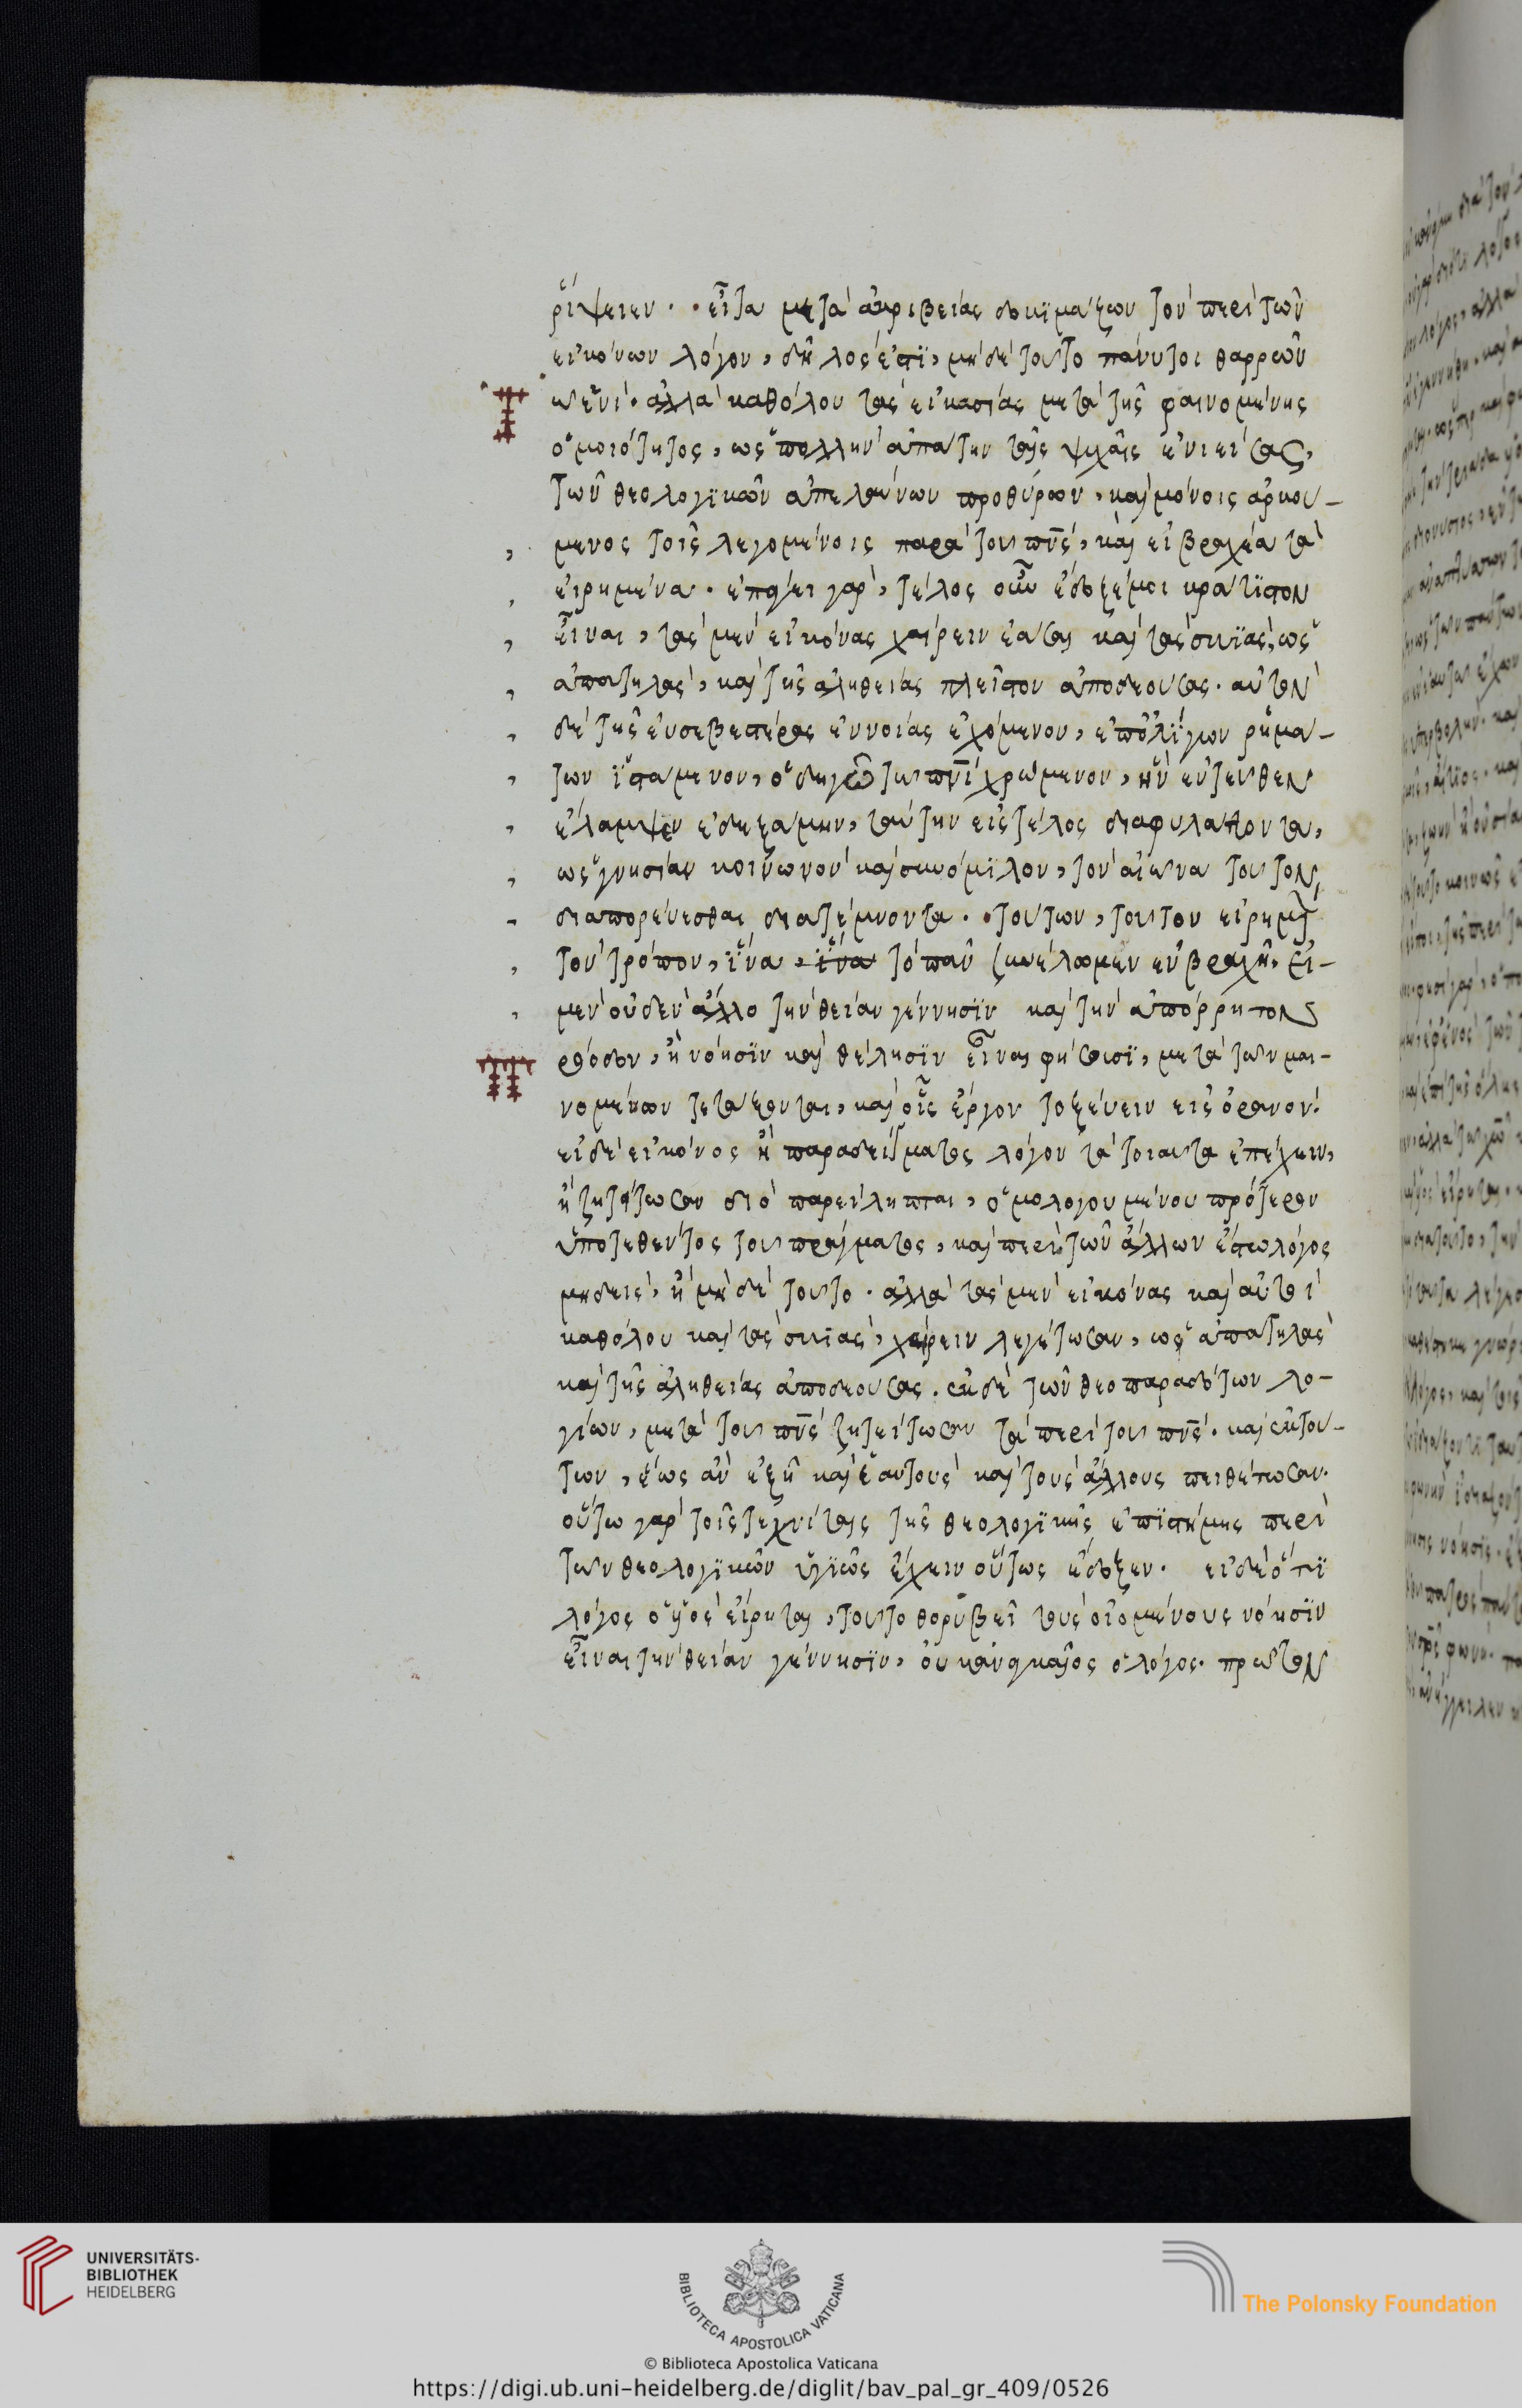 ῥίψειεν. εἶτα μετὰ ἀκριβείας δοκιμάζων τὸν περὶ τῶν
εἰκόνων λόγον, δῆλός ἐστι, μηδὲ τοῦτο πάνυ τοι θαρρῶν
ἀλλὰ καθόλου τὰς εἰκασίας μετὰ τῆς φαινομένης
ὁμοιότητος, ὡς πολλὴν ἀπάτην ταῖς ψυχαῖς ἐνιείσας,
τῶν θεολογικῶν ἀπελαύνων προθύρων, καὶ μόνοις ἀρκού-
μενος τοῖς λεγομένοις παρὰ τοῦ πνς, κἂν εἰ βραχέα τὰ
εἰρημένα. ἐπάγει γὰρ, τέλος οὖν ἔδοξέ μοι κράτιστον
εἶναι, τὰς μὲν εἰκόνας χαίρειν ἐᾶσαι καὶ τὰς σκιὰς, ὡς
ἀπατηλὰς, καὶ τῆς ἀληθείας πλεῖστον ἀποδεούσας. αὐτὸν
δὲ τῆς εὐσεβεστέρας ἐννοίας ἐχόμενον, ἐπ' ὀλίγων ῥημά-
των ἱστάμενον, ὁδηγῷ τῷ πνι χρώμενον, ἣν ἐντεῦθεν
ἔλλαμψιν ἐδεξάμην, ταύτην εἰς τέλος διαφυλάττοντα,
ὡς γνησίαν κοινωνὸν καὶ συνόμιλον, τὸν αἰῶνα τοῦτον
διαπορεύεσθαι διατέμνοντα. τούτων, τοῦτον εἰρημέ
τὸν τρόπον, ἵνα, ἵνα τὸ πᾶν συνέλωμεν ἐν βραχεῖ, εἰ
μὲν οὐδὲν ἄλλο τὴν θείαν γέννησιν καὶ τὴν ἀπόρρητον
πρόοδον, ἢ νόησιν καὶ θέλησιν εἶναι φήσουσι, μετὰ τῶν μαι-
νομένων τετάξονται, καὶ οἷς ἔργον τοξεύειν εἰς οὐρανόν.
εἰ δὲ εἰκόνος ἢ παραδείγματος λόγον τὰ τοιαῦτα ἐπέχειν,
ἢ ζητείτωσαν διὸ παρείληπται, ὁμολογουμένου πρότερον
ὑποτεθέντος τοῦ πράγματος, καὶ περὶ τῶν ἄλλων ἔστω λόγος
μηδεὶς, ἢ μὴ δὲ τοῦτο. ἀλλὰ τὰς μὲν εἰκόνας καὶ αὐτοὶ
καθόλου καὶ τὰς σκιὰς, χαίρειν λεγέτωσαν, ὡς ἀπατηλὰς
καὶ τῆς ἀληθείας ἀποδεούσας. ἐκ δὲ τῶν θεοπαραδότων λο-
γίων, μετὰ τοῦ πνς ζητείτωσαν τὰ περὶ τοῦ πνς. καὶ ἐκ τού-
των, ἕως ἂν ἐξῇ καὶ ἑαυτοὺς καὶ τοὺς ἄλλους πειθέτωσαν.
οὕτω γὰρ τοῖς τεχνίταις τῆς θεολογικῆς ἐπιστήμης περὶ
τῶν θεολογικῶν ὑγιῶς ἔχειν οὕτως ἔδοξεν. εἰ δὲ ὅτι
λόγος ὁ υἱὸς εἴρηται, τοῦτο θορυβεῖ τοὺς οἰομένους νόησιν
εἶναι τὴν θείαν γέννησιν, οὐκ ἀναγκαῖος ὁ λόγος. πρῶτον
UNIVERSITÄTS-
BIBLIOTHEK
HEIDELBERG
BIBLIOTECA APOSTOLICA VATICANA
The Polonsky Foundation
© Biblioteca Apostolica Vaticana
https://digi.ub.uni-heidelberg.de/diglit/bav_pal_gr_409/0526